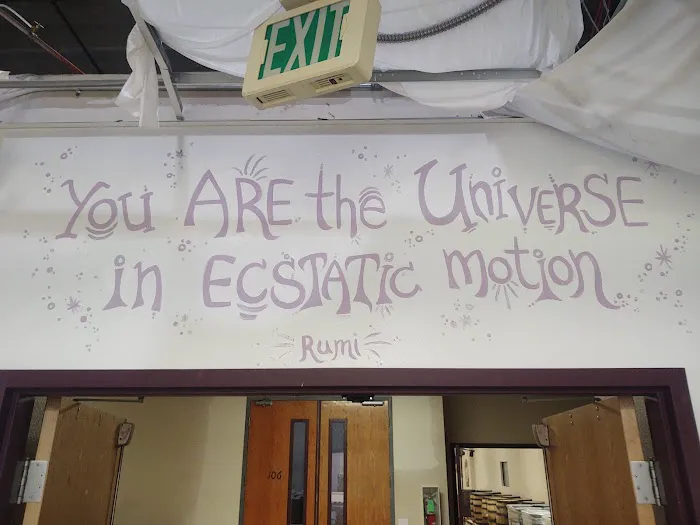 EXIT
You ARE the UniVERSE
in ECSTATic motion
Rumi
106